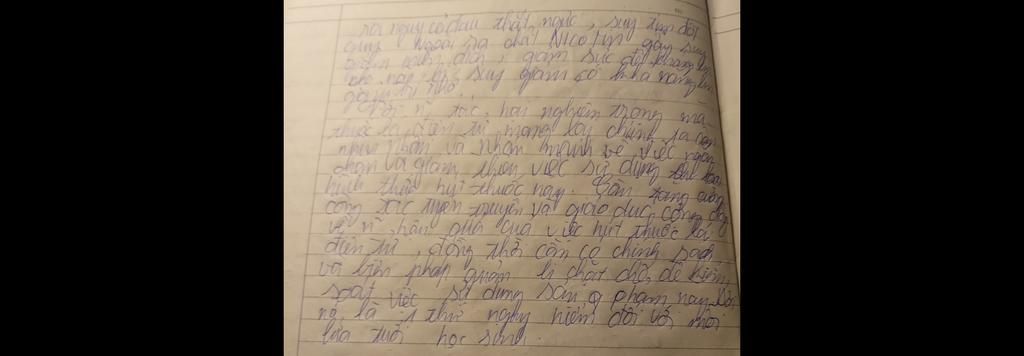 rơi nguy cơ đau thắt ngực, suy tim đột
cùng. Ngoài ra chất Nicotin gây suy
giảm miễn dịch, giảm sức đề kháng
suy giảm có khả năng
giảm trí nhớ.
Với n~ tác hại nghiêm trọng mà
thuốc lá điện tử mang lại chúng ta cần
nhìn nhận và nhấn mạnh về việc ngăn
chặn và giảm thiểu việc sử dụng
thuốc này. Cần tăng cường
công tác tuyên truyền và giáo dục cộng
về n~ hậu quả của việc hút thuốc lá
điện tử, đồng thời cần có chính sách
và biện pháp quản lí chặt chẽ để kiểm
soát việc sử dụng sản phẩm này. Bởi
nó là 1 thứ nguy hiểm đối với mọi
lứa tuổi học sinh.